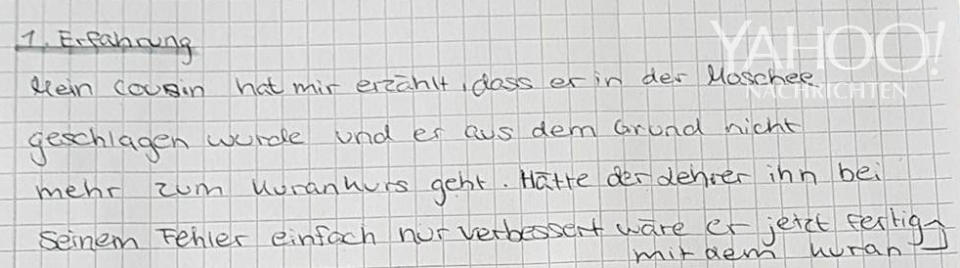 YAHOO!
NACHRICHTEN
1. Erfahrung
Mein Cousin hat mir erzählt, dass er in der Moschee
geschlagen wurde und er aus dem Grund nicht
mehr zum Kurankurs geht. Hätte der Lehrer ihn bei
seinem Fehler einfach nur verbessert wäre er jetzt fertig
mit dem Kuran